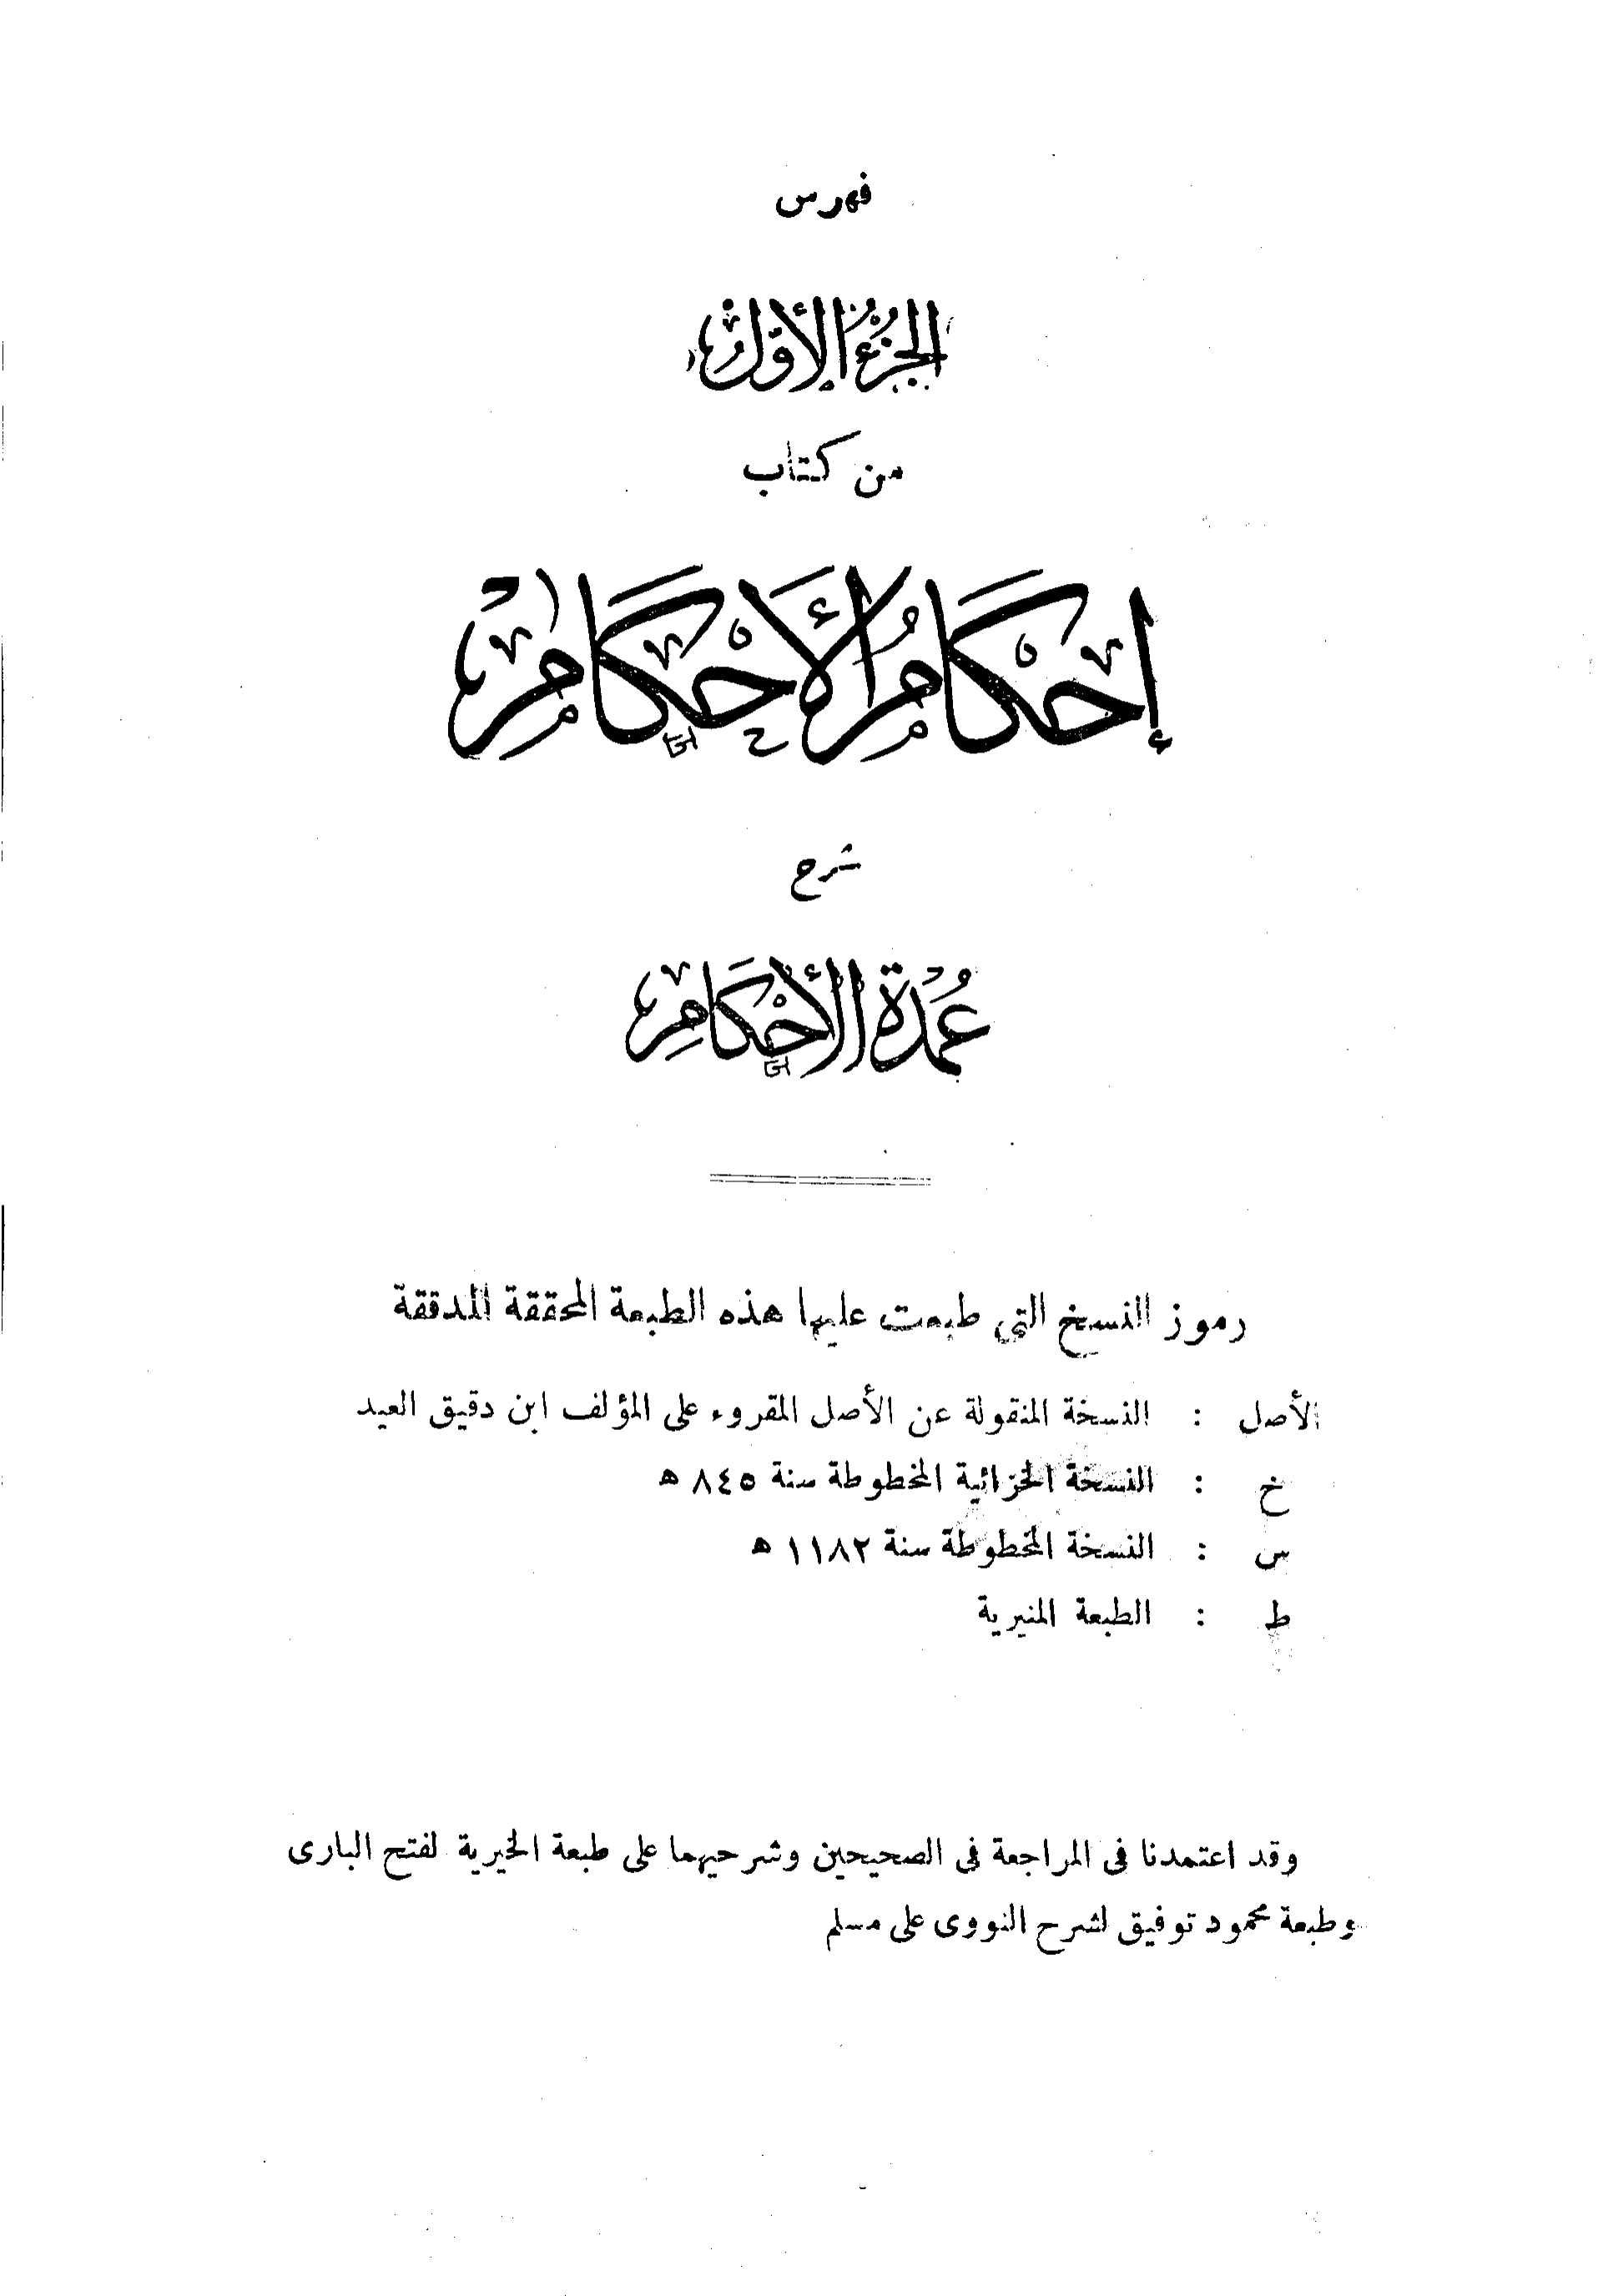 فهرس
الجزء الأول
من كتاب
إحكام الأحكام
شرح
عمدة الأحكام
رموز النسخ التى طبعت عليها هذه الطبعة المحققة المدققة
الأصل : النسخة المنقولة عن الأصل المقروء على المؤلف ابن دقيق العيد
خ : النسخة الخزائية المخطوطة سنة ٨٤٥ ه
س : النسخة المخطوطة سنة ١١٨٢ ه
ط : الطبعة المنيرية
وقد اعتمدنا فى المراجعة فى الصحيحين وشرحيهما على طبعة الخيرية لفتح البارى
وطبعة محمود توفيق لشرح النووى على مسلم